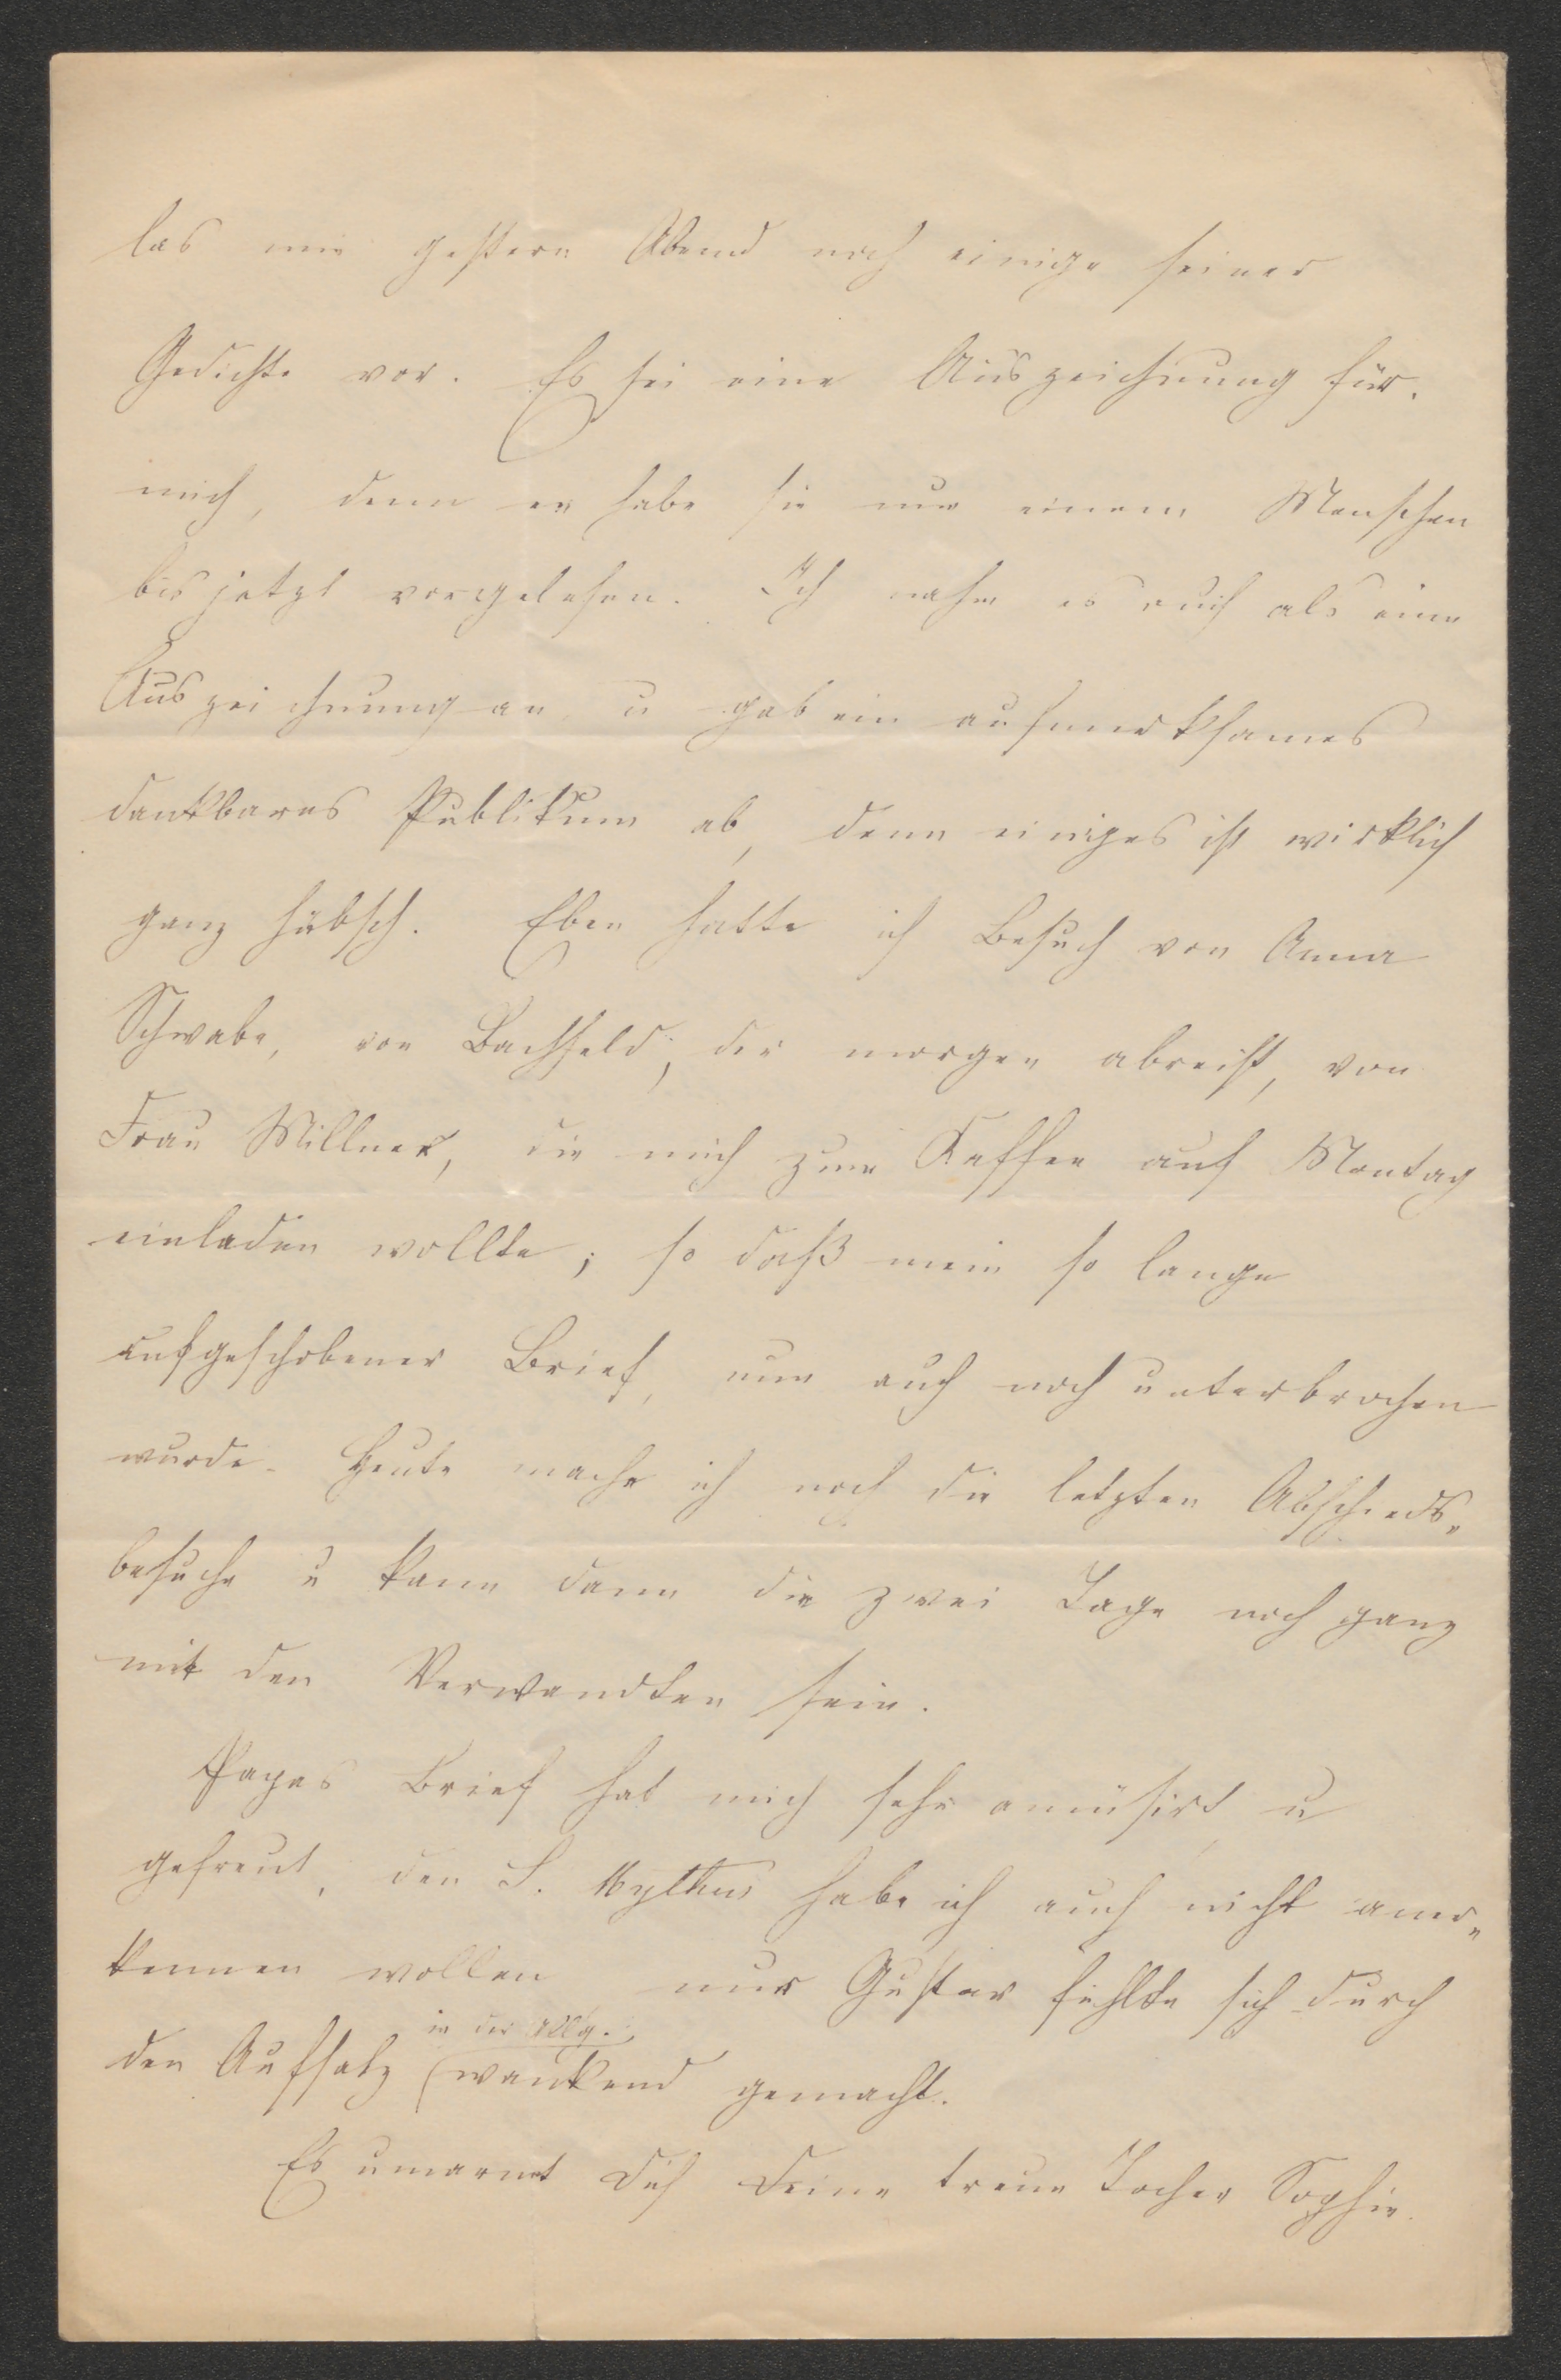 las mir gestern Abend noch einige seiner
Gedichte vor. Es sei eine Auszeichnung für
mich, denn er habe sie nur einem Menschen
bis jetzt vorgelesen. Ich nahm es auch als eine
Auszeichnung an u gab ein aufmerksames
dankbares Publikum ab, denn einiges ist wirklich
ganz hübsch. Eben hatte ich Besuch von Anna
Schwabe, von Bachfeld, der morgen abreist, von
Frau Millner, die mich zum Kaffee auf Montag
einladen wollte; so daß mein so lange
aufgeschobener Brief, nun auch noch unterbrochen
wurde. Heute mache ich noch die letzten Abschieds„
besuche u kann dann die zwei Tage noch ganz
mit den Verwandten sein.
Papas Brief hat mich sehr amüsirt u
gefreut, den S. Mythus habe ich auch nicht aner„
kennen wollen nur Gustav fühlte sich durch
den Aufsatz in der Allg. wankend gemacht.
Es umarmt Dich Deine treue Tocher Sophie.